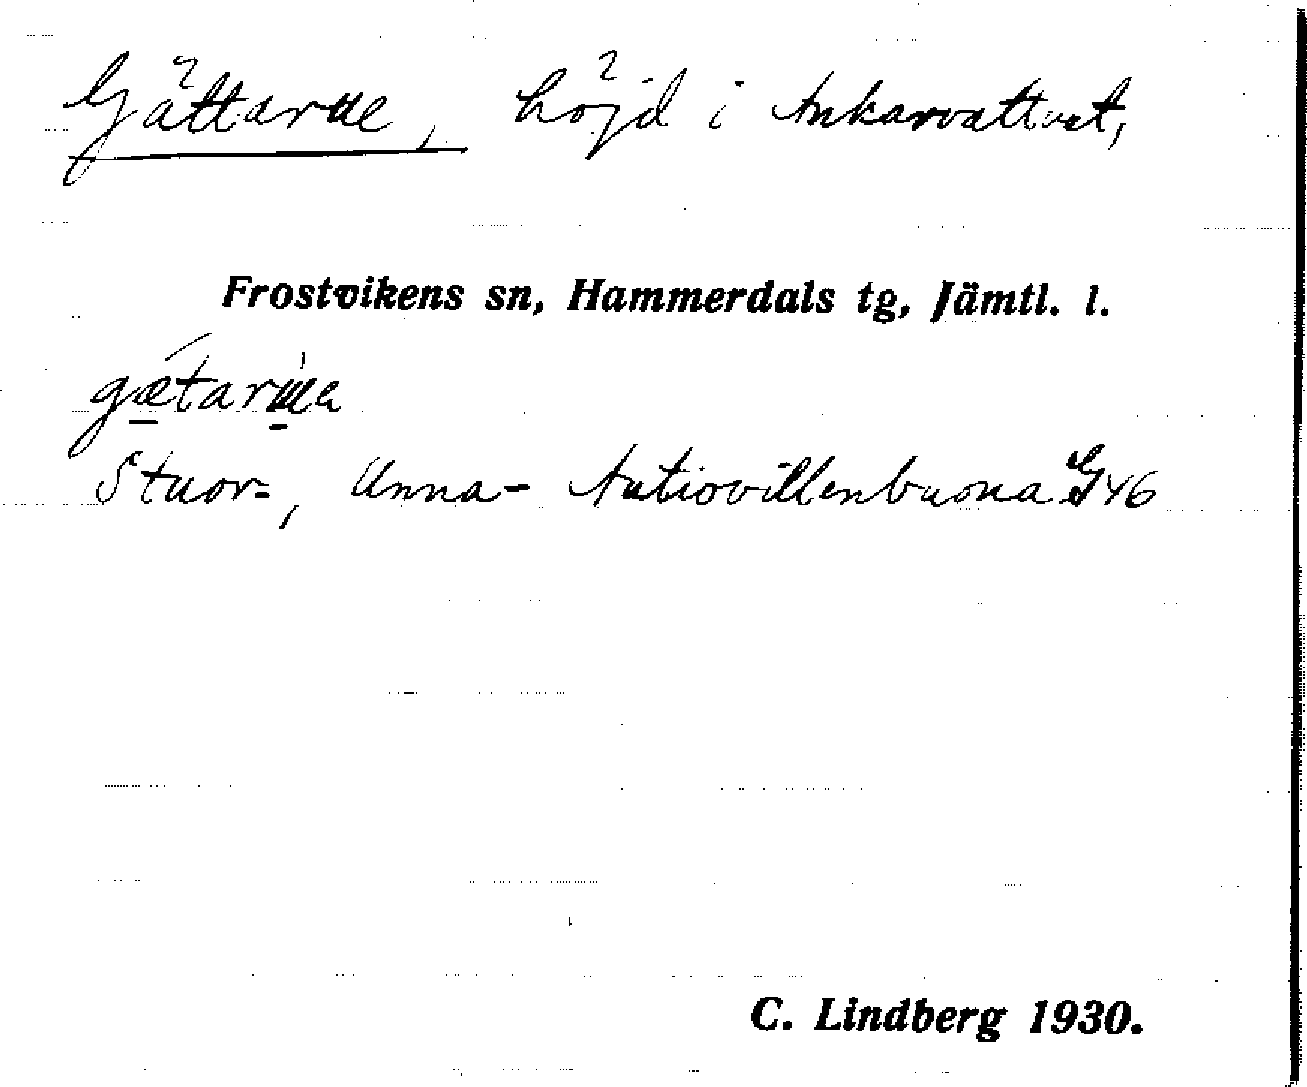 Gättarne, höjd i Ankarvattnet,
Frostvikens sn, Hammerdals tg, Jämtl. l.
Stuor-, Unna- Autiovillenbuona G46
C. Lindberg 1930.